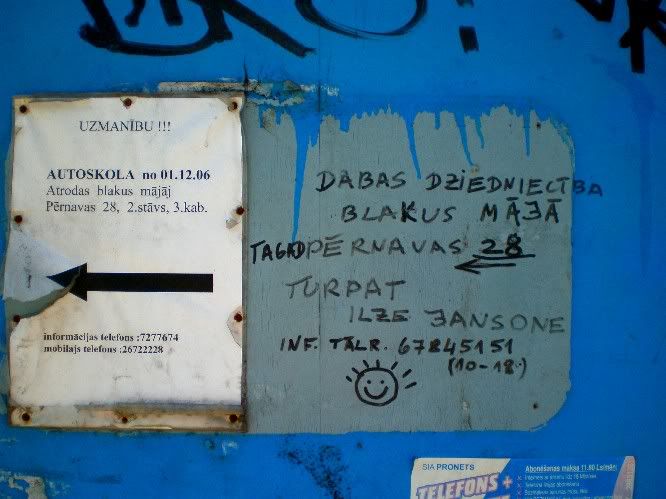 UZMANĪBU !!!
AUTOSKOLA no 01.12.06
Atrodas blakus mājāj
Pērnavas 28, 2.stāvs, 3.kab.
informācijas telefons :7277674
mobilajs telefons :26722228
DABAS DZIEDNIECĪBA
BLAKUS MĀJĀ
TAGAD PĒRNAVAS 28
TURPAT
ILZE JANSONE
INF. TĀLR. 67845151
(10-18)
SIA PRONETS
TELEFONS +
Abonēšanas maksa 11.80 Ls/mēn: